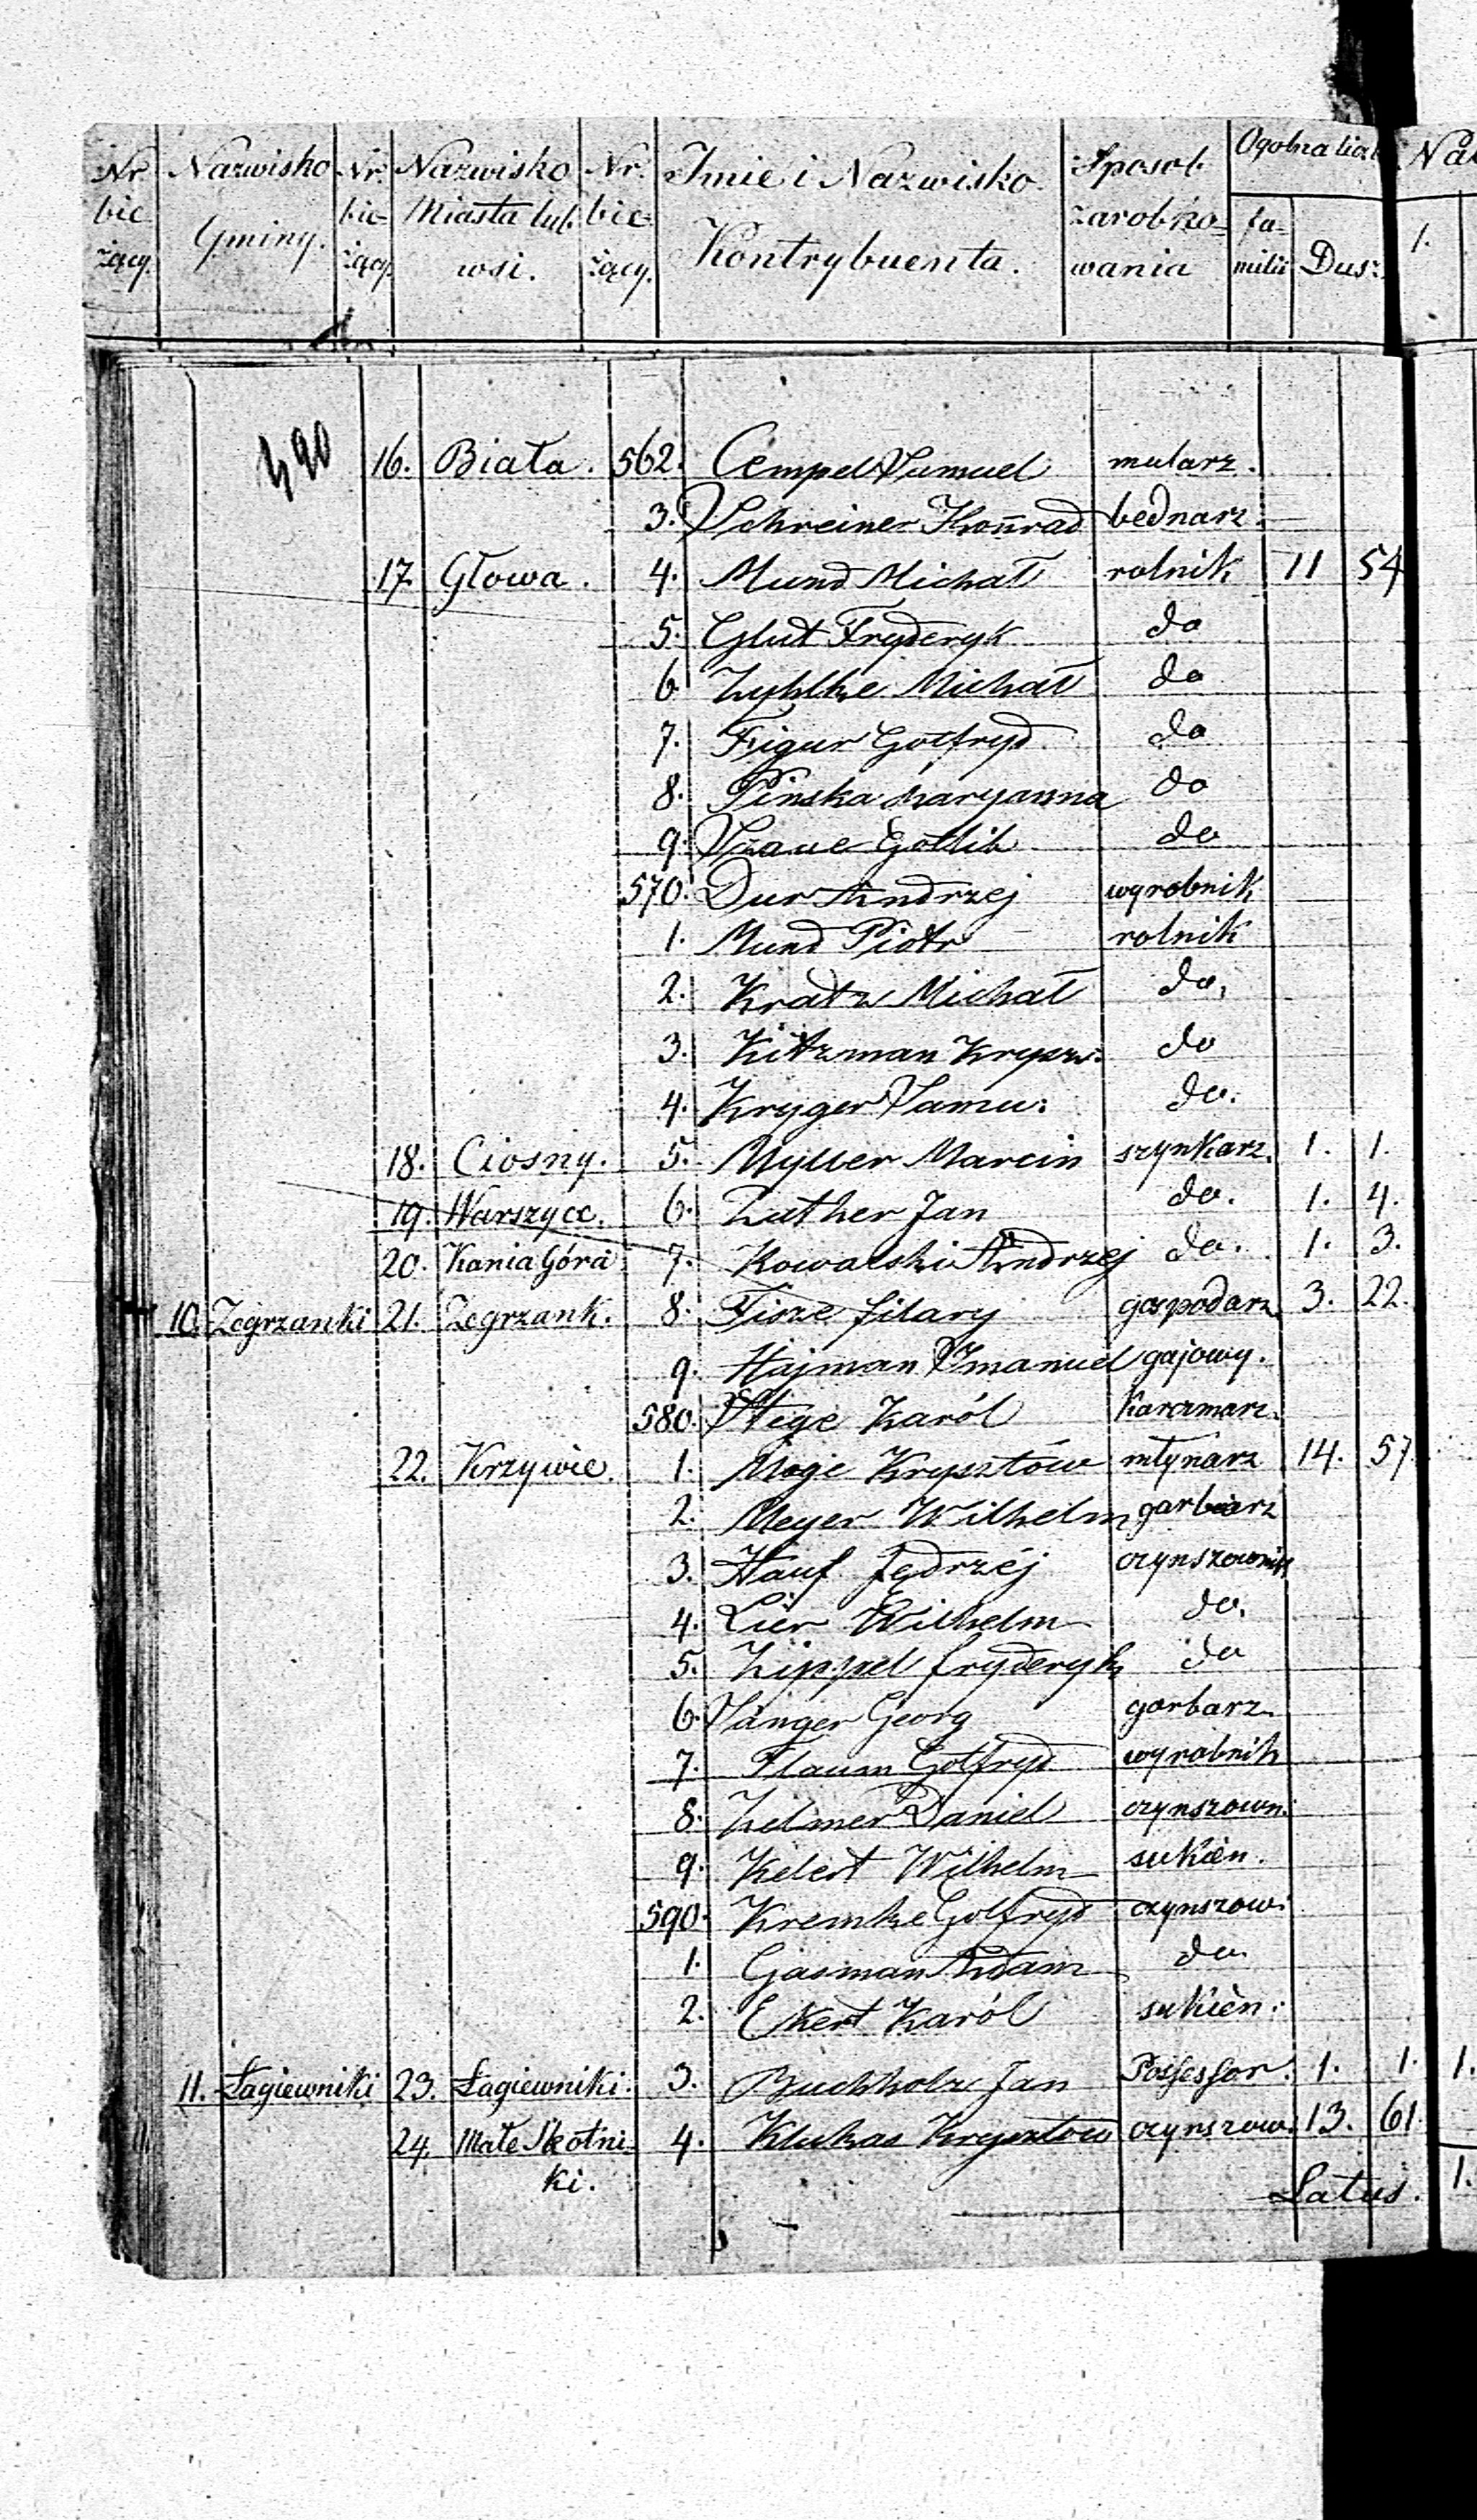 Nr. bieżący. Nazwisko Gminy. Nr. bieżący. Nazwisko Miasta lub wsi. Nr. bieżący. Imie i Nazwisko Kontrybuenta. Sposob zarobkowania Ogolna liczb familii Dusz 1.
490
16. Biała. 562. Cempel Samuel mularz.
3. Schreiner Konrad bednarz.
17 Głowa. 4. Mund Michał rolnik 11 54
5. Glut Fryderyk do
6 Zyhlke Michał do
7. Figur Gotfryd do
8. Pinska Maryanna do
9. Gotlib do
570. Dur Andrzej wyrobnik
1. Mund Piotr rolnik
2. Kratz Michał do.
3. Kitzman Krysz. do
4. Kryger Samu: do.
18. Ciosny. 5. Myller Marcin szynkarz. 1. 1.
19. Warszyce. 6. Luther Jan do. 1. 4.
20. Kania Góra 7. Kowalski Andrzej do. 1. 3.
10. Zegrzanki 21. Zegrzank. 8. Fisze filary gospodarz. 3. 22.
9. Hajman Imanuel gajowy.
580. Stege Karól karczmarz.
22. Krzywie. 1. Moge Krysztów młynarz 14. 57
2. Meyer Wilhelm garbarz
3. Hauf Jędrzéj czynszownik
4. Lier Wilhelm do.
5. Zippel fryderyk do
6. Sänger Georg garbarz
7. Flaum Gotfryd wyrobnik
8. Zelmer Daniel czynszown:
9. Kelert Wilhelm sukien.
590. Kremke Golfryd czynszow:
1. Gasman Adam do.
2. Ekert Karól sukien:
11. Łagiewniki 23. Łagiewniki. 3. Buchholz Jan Possessor. 1. 1. 1.
24. Małe Skotni- 4. Klukas Krysztow czynszow. 13. 61
ki.
Latus. 1.